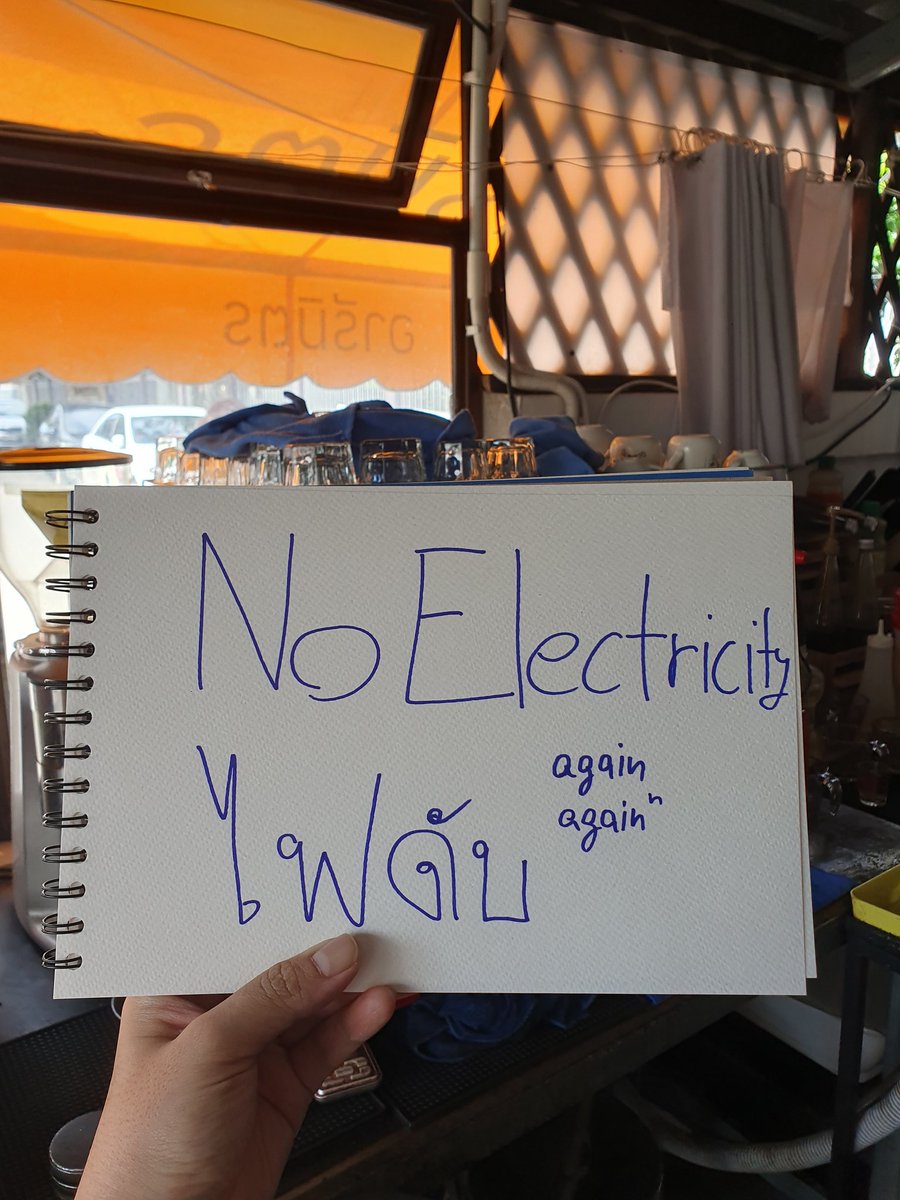 No Electricity
ไฟดับ
again
againⁿ